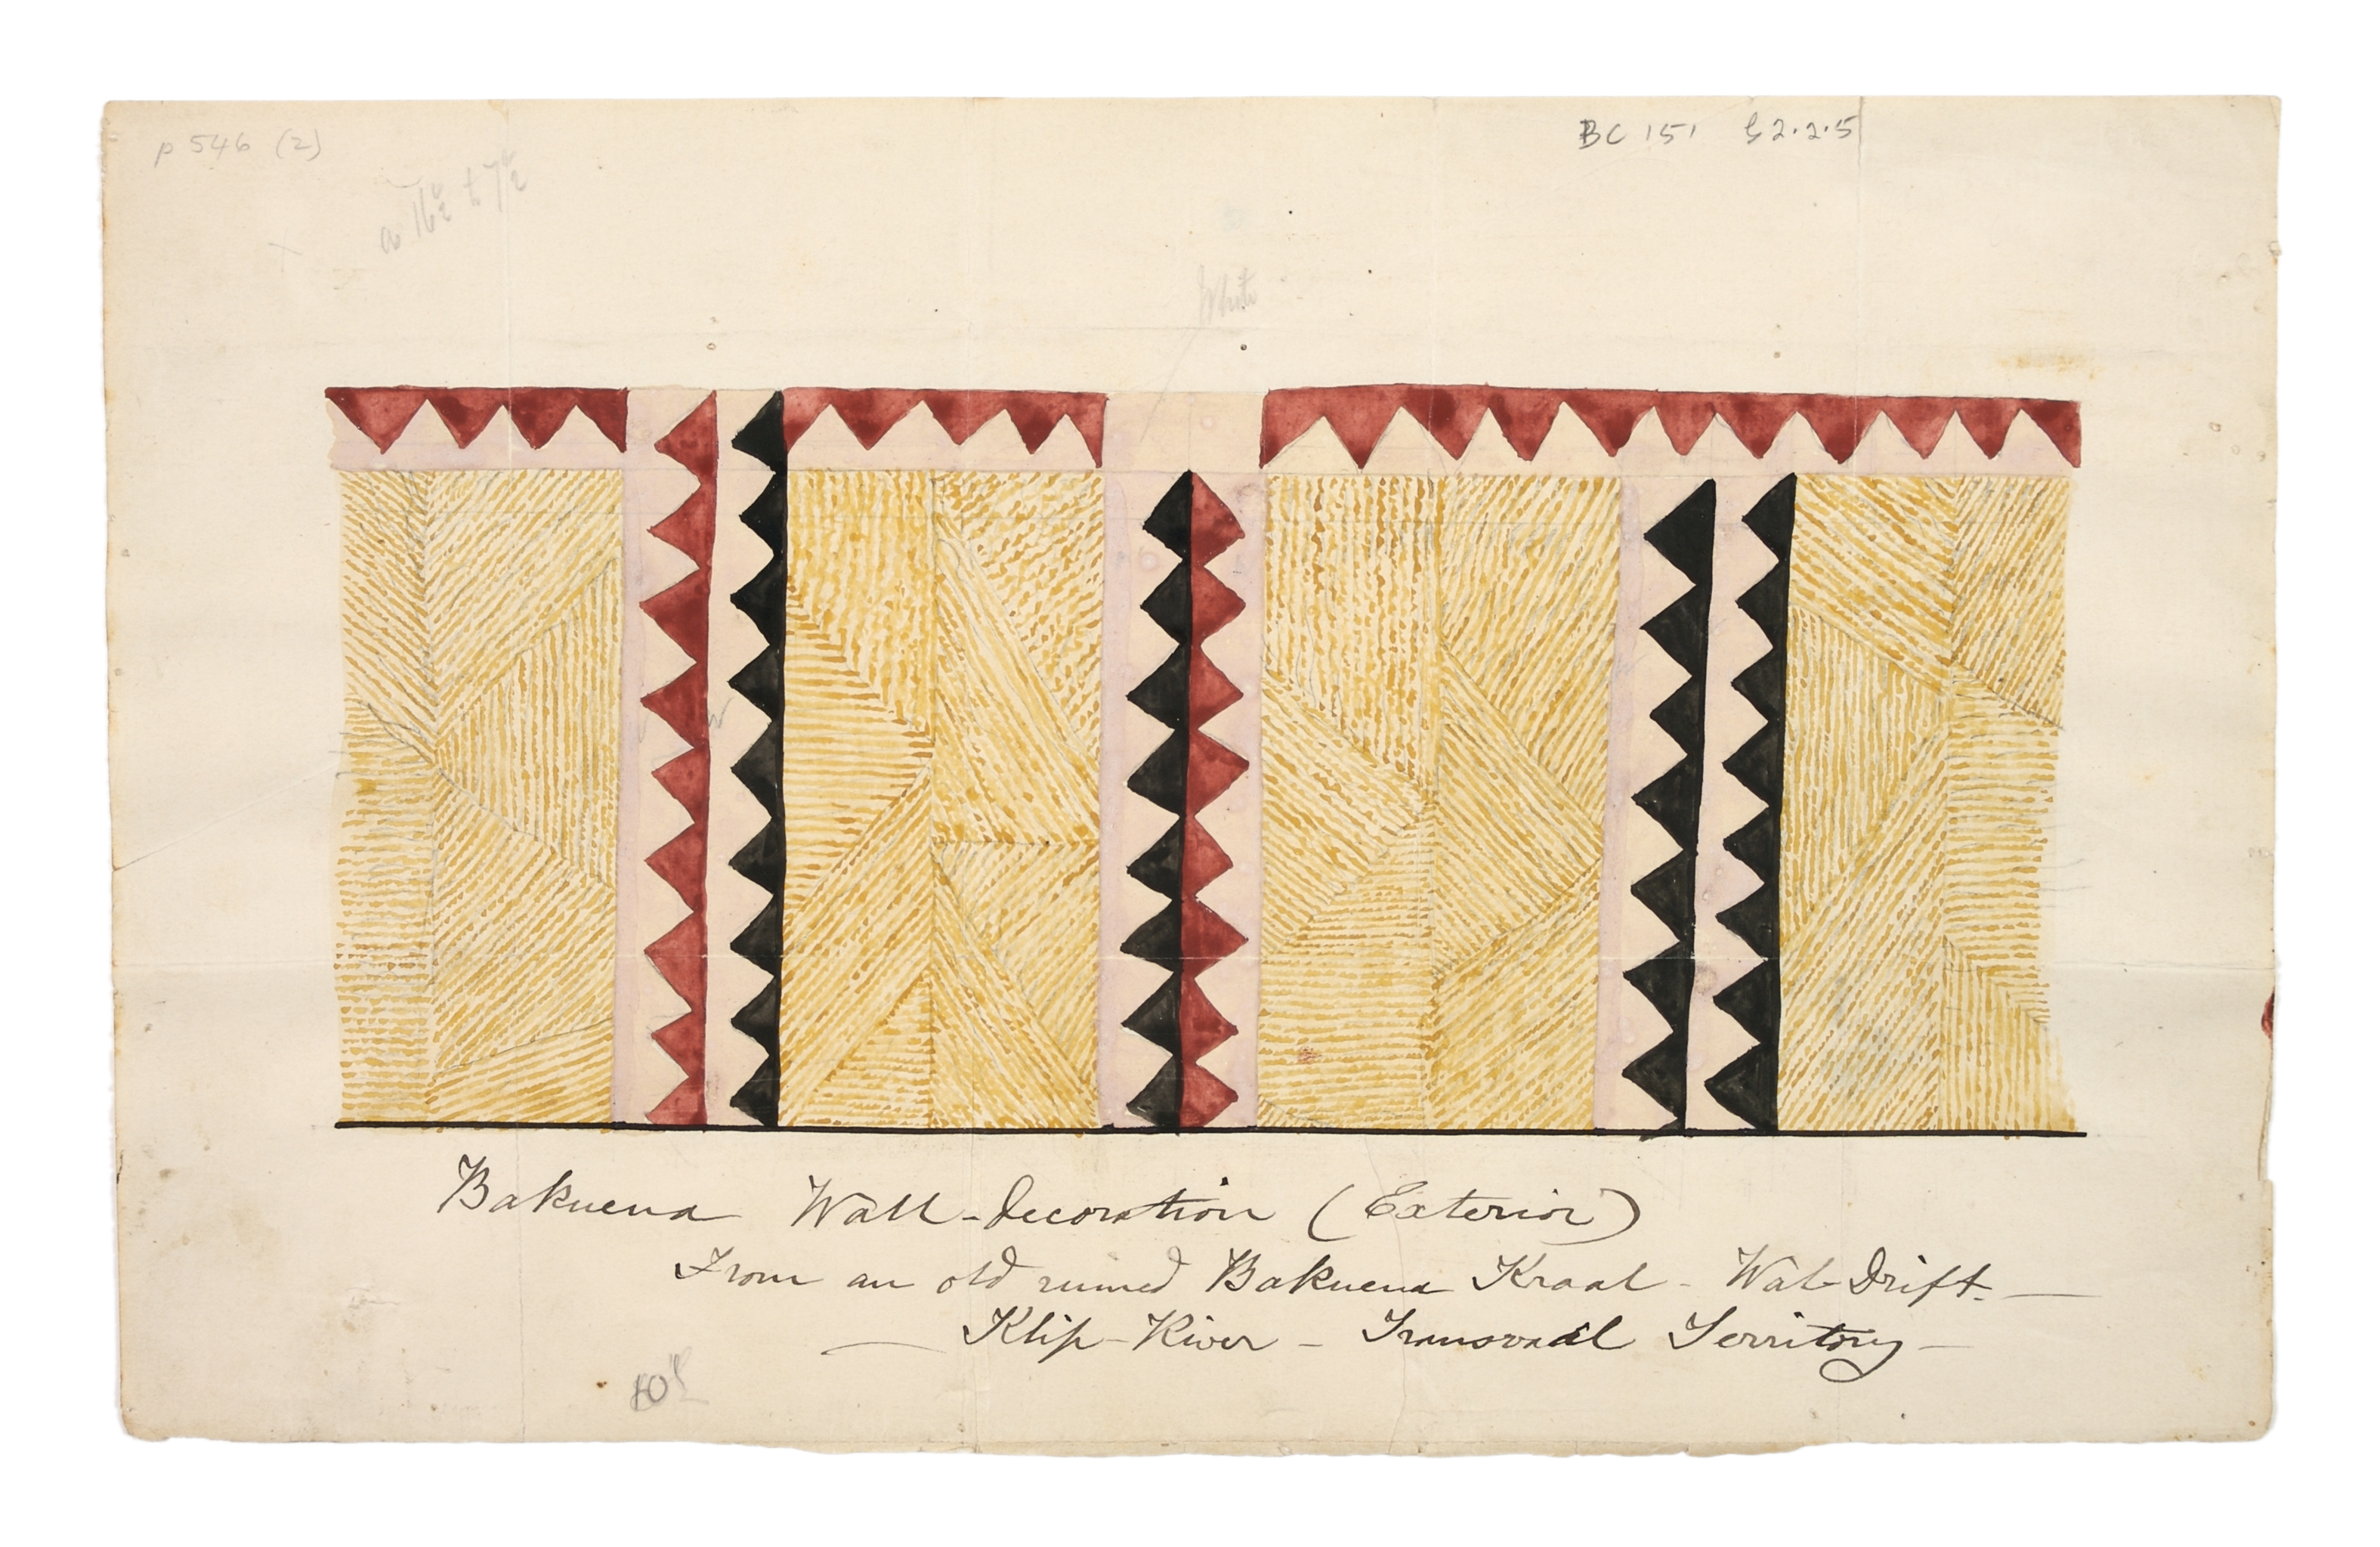 p 546 (2)
BC 151 G2.2.5
White
Bakuena Wall-decoration (Exterior)
From an old ruined Bakuena Kraal - Wal-Drift. —
— Klip-River - Transvaal Territory —